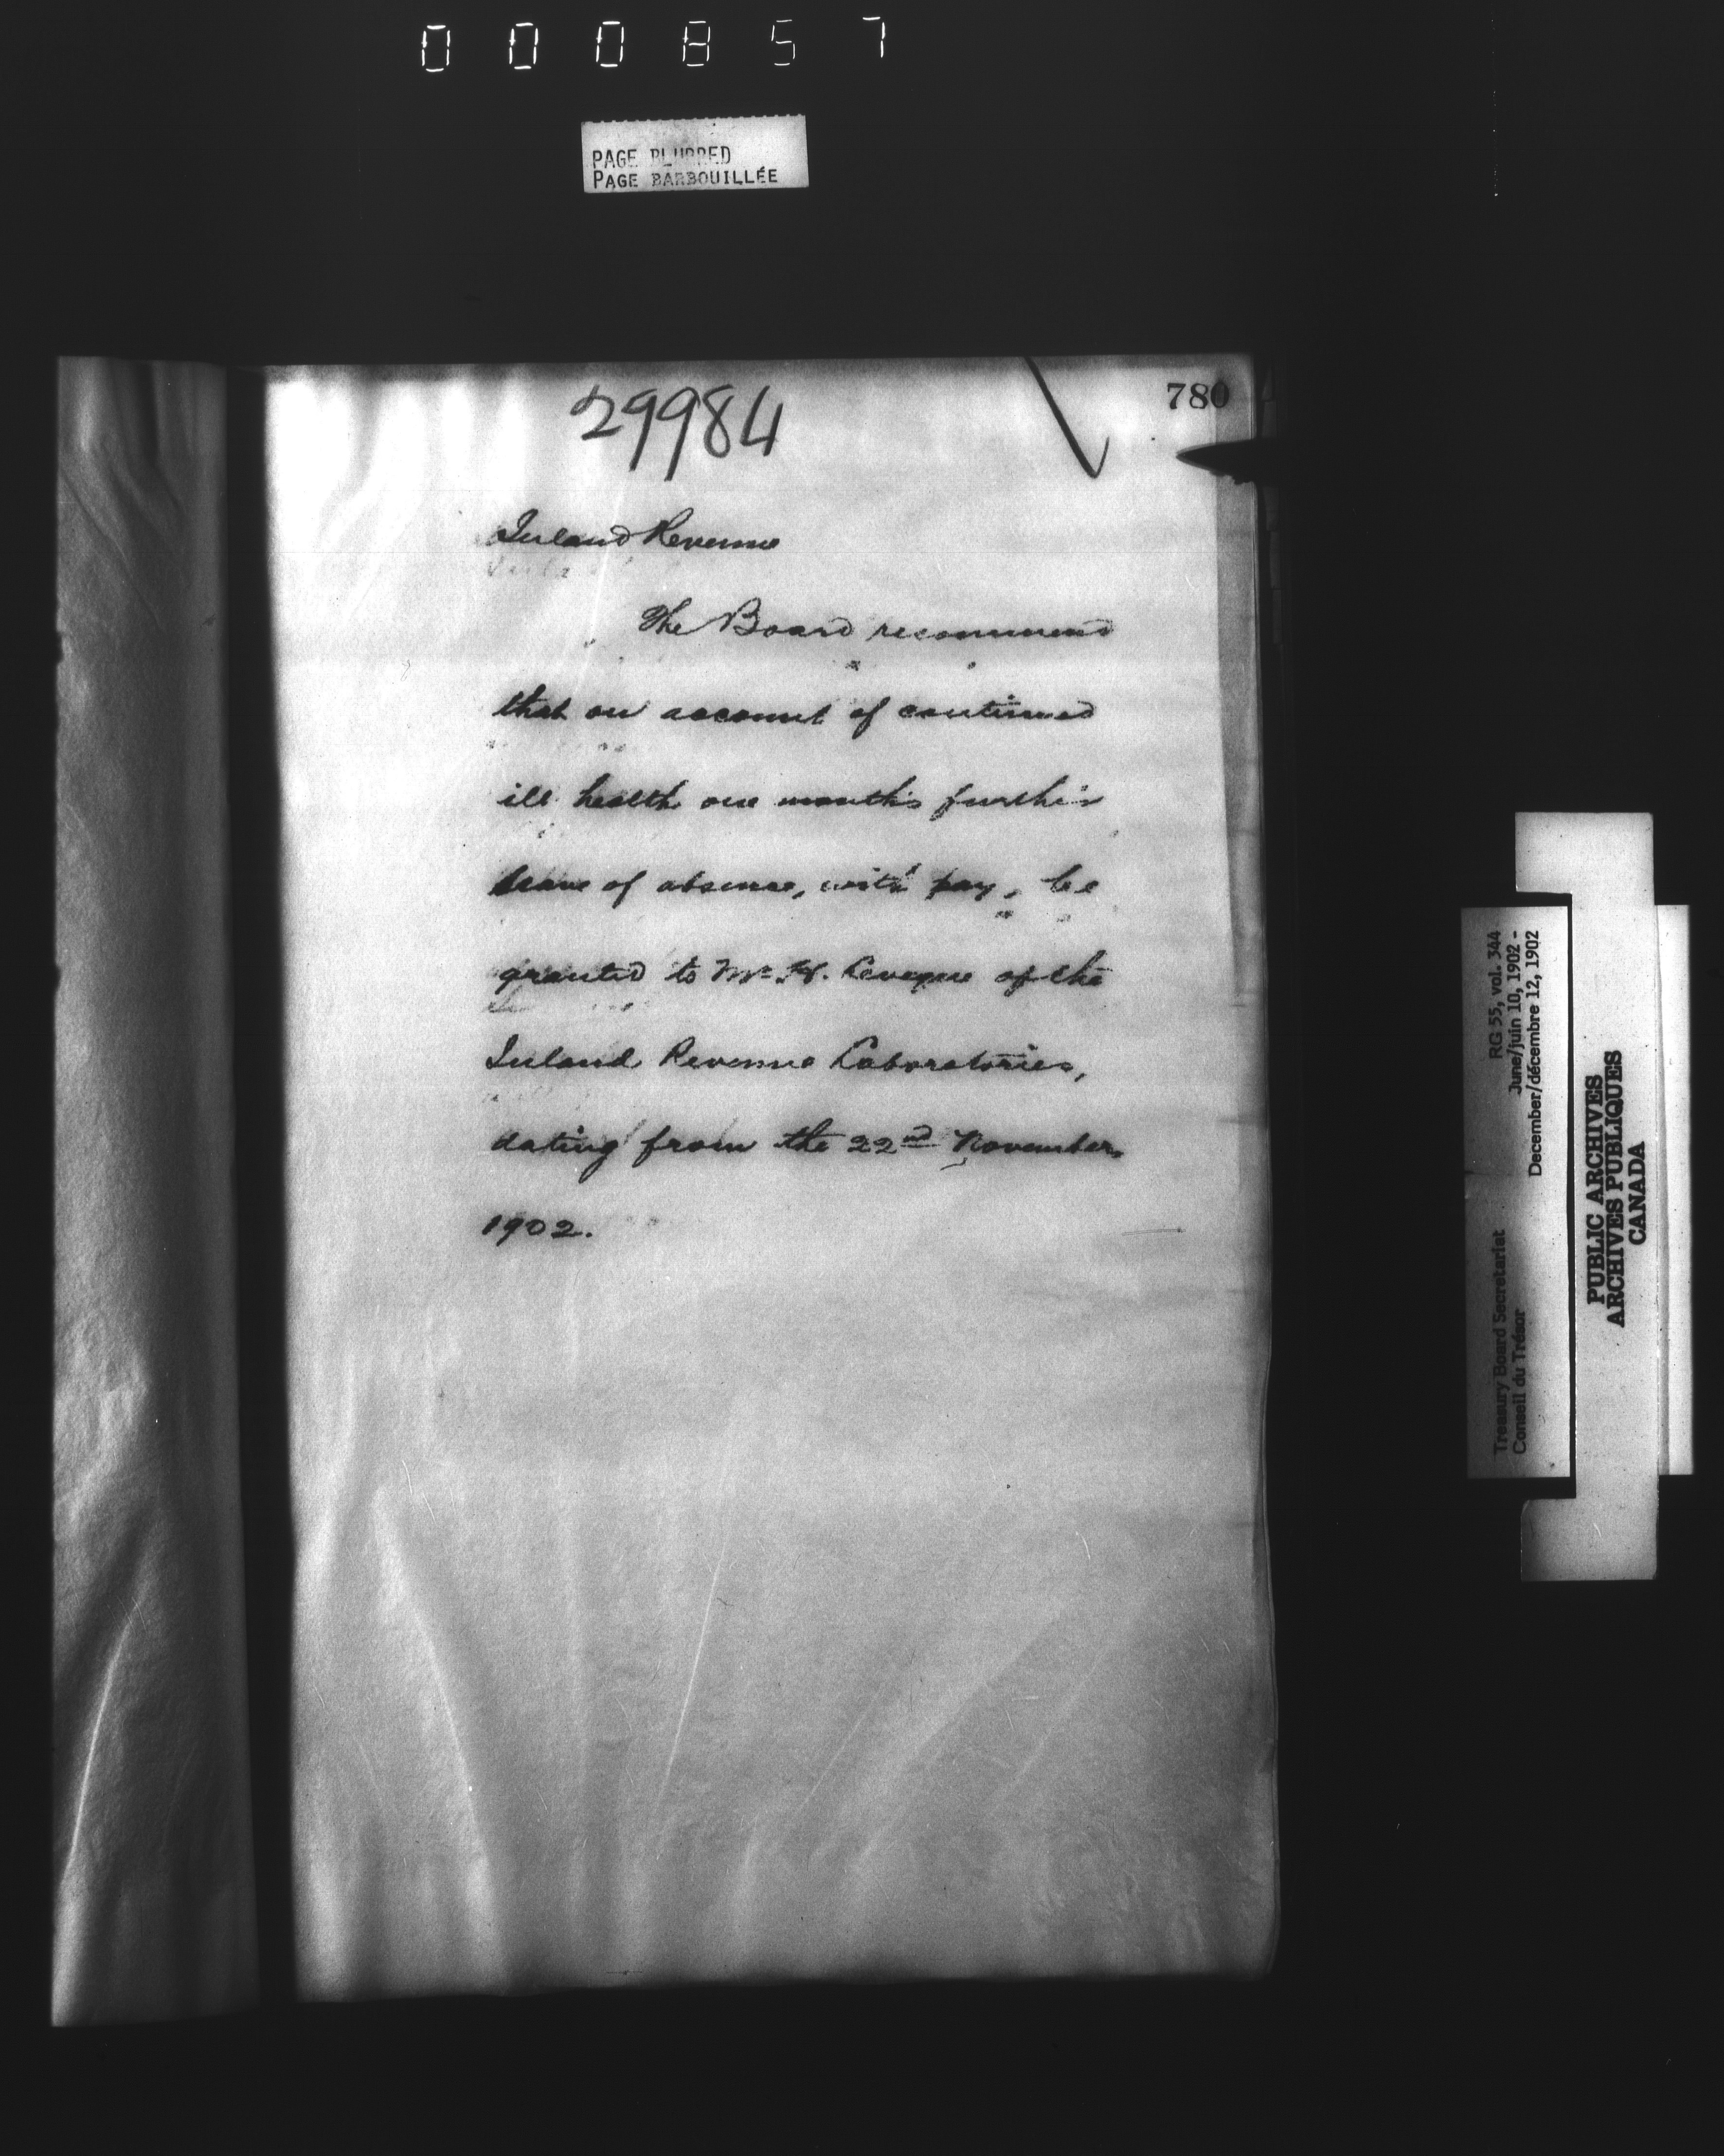 000857
PAGE BLURRED
PAGE BARBOUILLÉE
780
29984
Inland Revenue
The Board recommend
that on account of continued
ill health one month's further
leave of absence, with pay, be
granted to Mr. H. Leveque of the
Inland Revenue Laboratories,
dating from the 22nd November,
1902.
Treasury Board Secretariat RG 55, vol. 344
Conseil du Trésor June/juin 10, 1902 -
December/décembre 12, 1902
PUBLIC ARCHIVES
ARCHIVES PUBLIQUES
CANADA